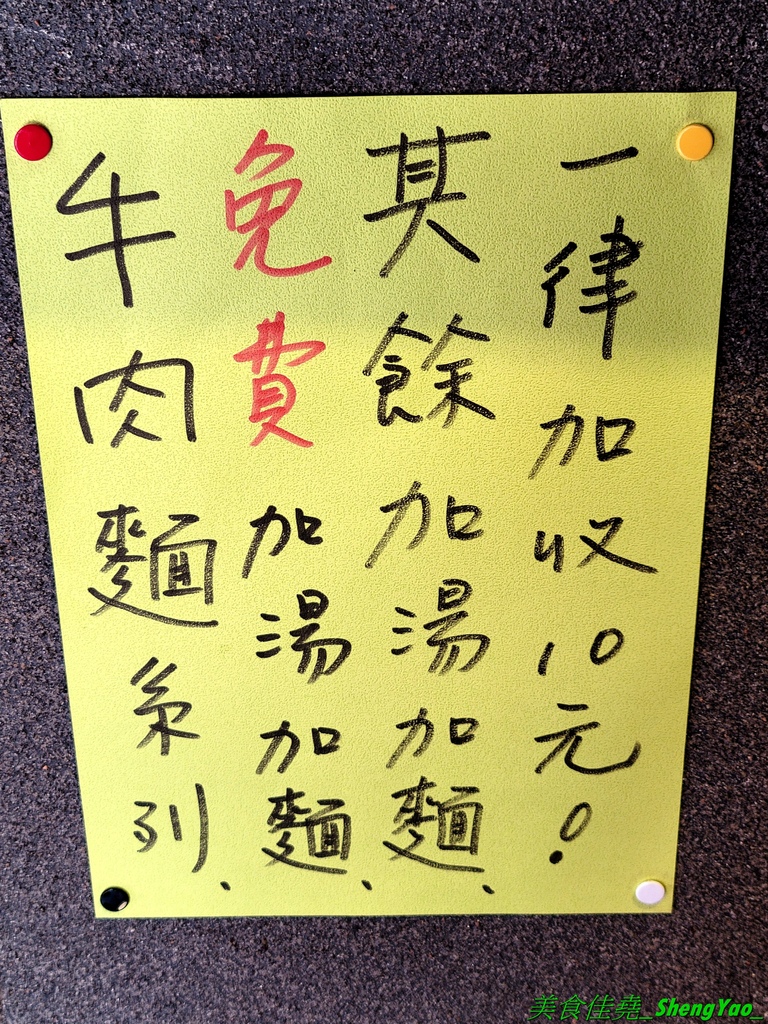 牛肉麵系列、
免費加湯加麵、
其餘加湯加麵、
一律加收10元!
美食佳堯_ShengYao_